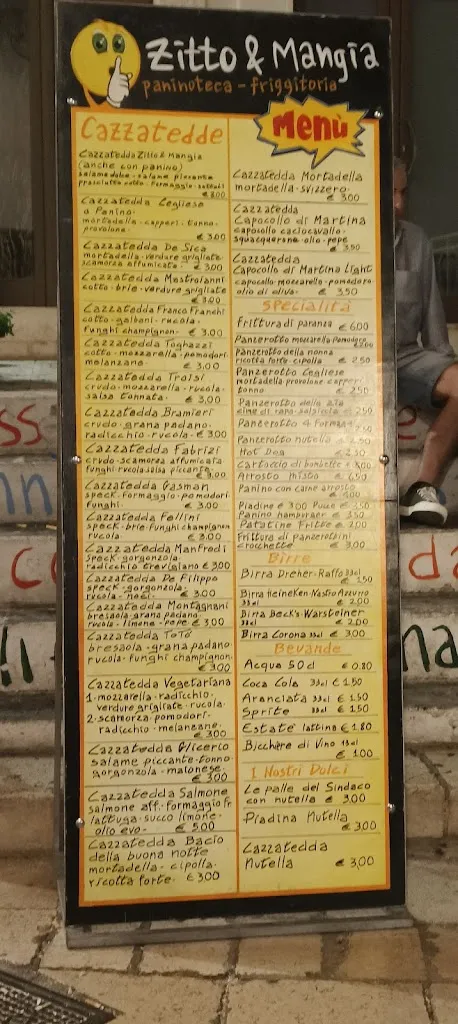 Zitto & Mangia
paninoteca - friggitoria
Menù
Cazzatedde
Cazzatedda Zitto & Mangia
(anche con panino)
salame dolce - salame piccante
prosciutto cotto - formaggio - sottoli
€ 3.00
Cazzatedda Cegliese
o Panino
mortadella - capperi - tonno -
provolone
€ 3.00
Cazzatedda De Sica
mortadella - verdure grigliate
scamorza affumicata
€ 3.00
Cazzatedda Mastroianni
cotto - brie - verdure grigliate
€ 3.00
Cazzatedda Franco Franchi
cotto - galboni - rucola -
funghi champignon - € 3.00
Cazzatedda Tognazzi
cotto - mozzarella - pomodori
melanzane € 3.00
Cazzatedda Troisi
crudo - mozzarella - rucola -
salsa tonnata € 3,00
Cazzatedda Bramieri
crudo - grana padano -
radicchio - rucola - € 3.00
Cazzatedda Fabrizi
crudo - scamorza affumicata
funghi - rucola - salsa piccante
€ 3.00
Cazzatedda Gasman
speck - formaggio - pomodori
funghi - € 3.00
Cazzatedda Fellini
speck - brie - funghi champignon
rucola - € 3.00
Cazzatedda Manfredi
speck - gorgonzola -
radicchio trevigiano € 3.00
Cazzatedda De Filippo
speck - gorgonzola -
rucola - noci - € 3.00
Cazzatedda Montagnani
bresaola - grana padano -
rucola - limone - pepe € 3.00
Cazzatedda Totò
bresaola - grana padano -
rucola - funghi champignon.
€ 3.00
Cazzatedda Vegetariana
1 - mozzarella - radicchio -
verdure grigliate - rucola -
2 - scamorza - pomodori -
radicchio - melanzane -
€ 3.00
Cazzatedda Glicerio
salame piccante - tonno
gorgonzola - maionese.
€ 3.00
Cazzatedda Salmone
salmone aff. - formaggio fr
lattuga - succo limone -
olio evo - € 5.00
Cazzatedda Bacio
della buona notte
mortadella - cipolla -
ricotta forte - € 3.00
Cazzatedda Mortadella
mortadella - svizzero -
€ 3.00
Cazzatedda
Capocollo di Martina
capocollo caciocavallo -
squacquerone - olio - pepe
€ 3.50
Cazzatedda
Capocollo di Martina Light
capocollo - mozzarella - pomodoro -
olio di oliva - € 3.50
Specialità
Frittura di paranza € 6.00
Panzerotto mozzarella Pomodoro
Panzerotto della nonna
ricotta forte - cipolla € 2.50
Panzerotto Cegliese
mortadella provolone capperi
tonno € 2.50
Panzerotto della zia
cime di rapa - salsiccia € 2.50
Panzerotto 4 Formaggi 2.50
Panzerotto nutella € 2.50
Hot Dog € 2.50
Cartoccio di bombette € 5.00
Arrosto misto € 6.50
Panino con carne arrosto
€ 4.00
Piadine € 3.00 Pucce € 3.50
Panino hamburger € 3.50
Patatine Fritte € 2.00
Frittura di panzerottini
crocchette € 3.00
Birre
Birra Dreher - Raffo 33cl
€ 1.50
Birra Heineken - Nastro Azzurro
33cl € 2.00
Birra Beck's - Warsteiner
33cl € 2.00
Birra Corona 33cl € 3.00
Bevande
Acqua 50cl € 0.80
Coca Cola 33cl € 1.50
Aranciata 33cl € 1.50
Sprite 33cl € 1.50
Estate lattina € 1.80
Bicchiere di Vino 15cl
€ 1.00
I Nostri Dolci
Le palle del Sindaco
con nutella € 3,00
Piadina Nutella
€ 3,00
Cazzatedda
Nutella € 3,00